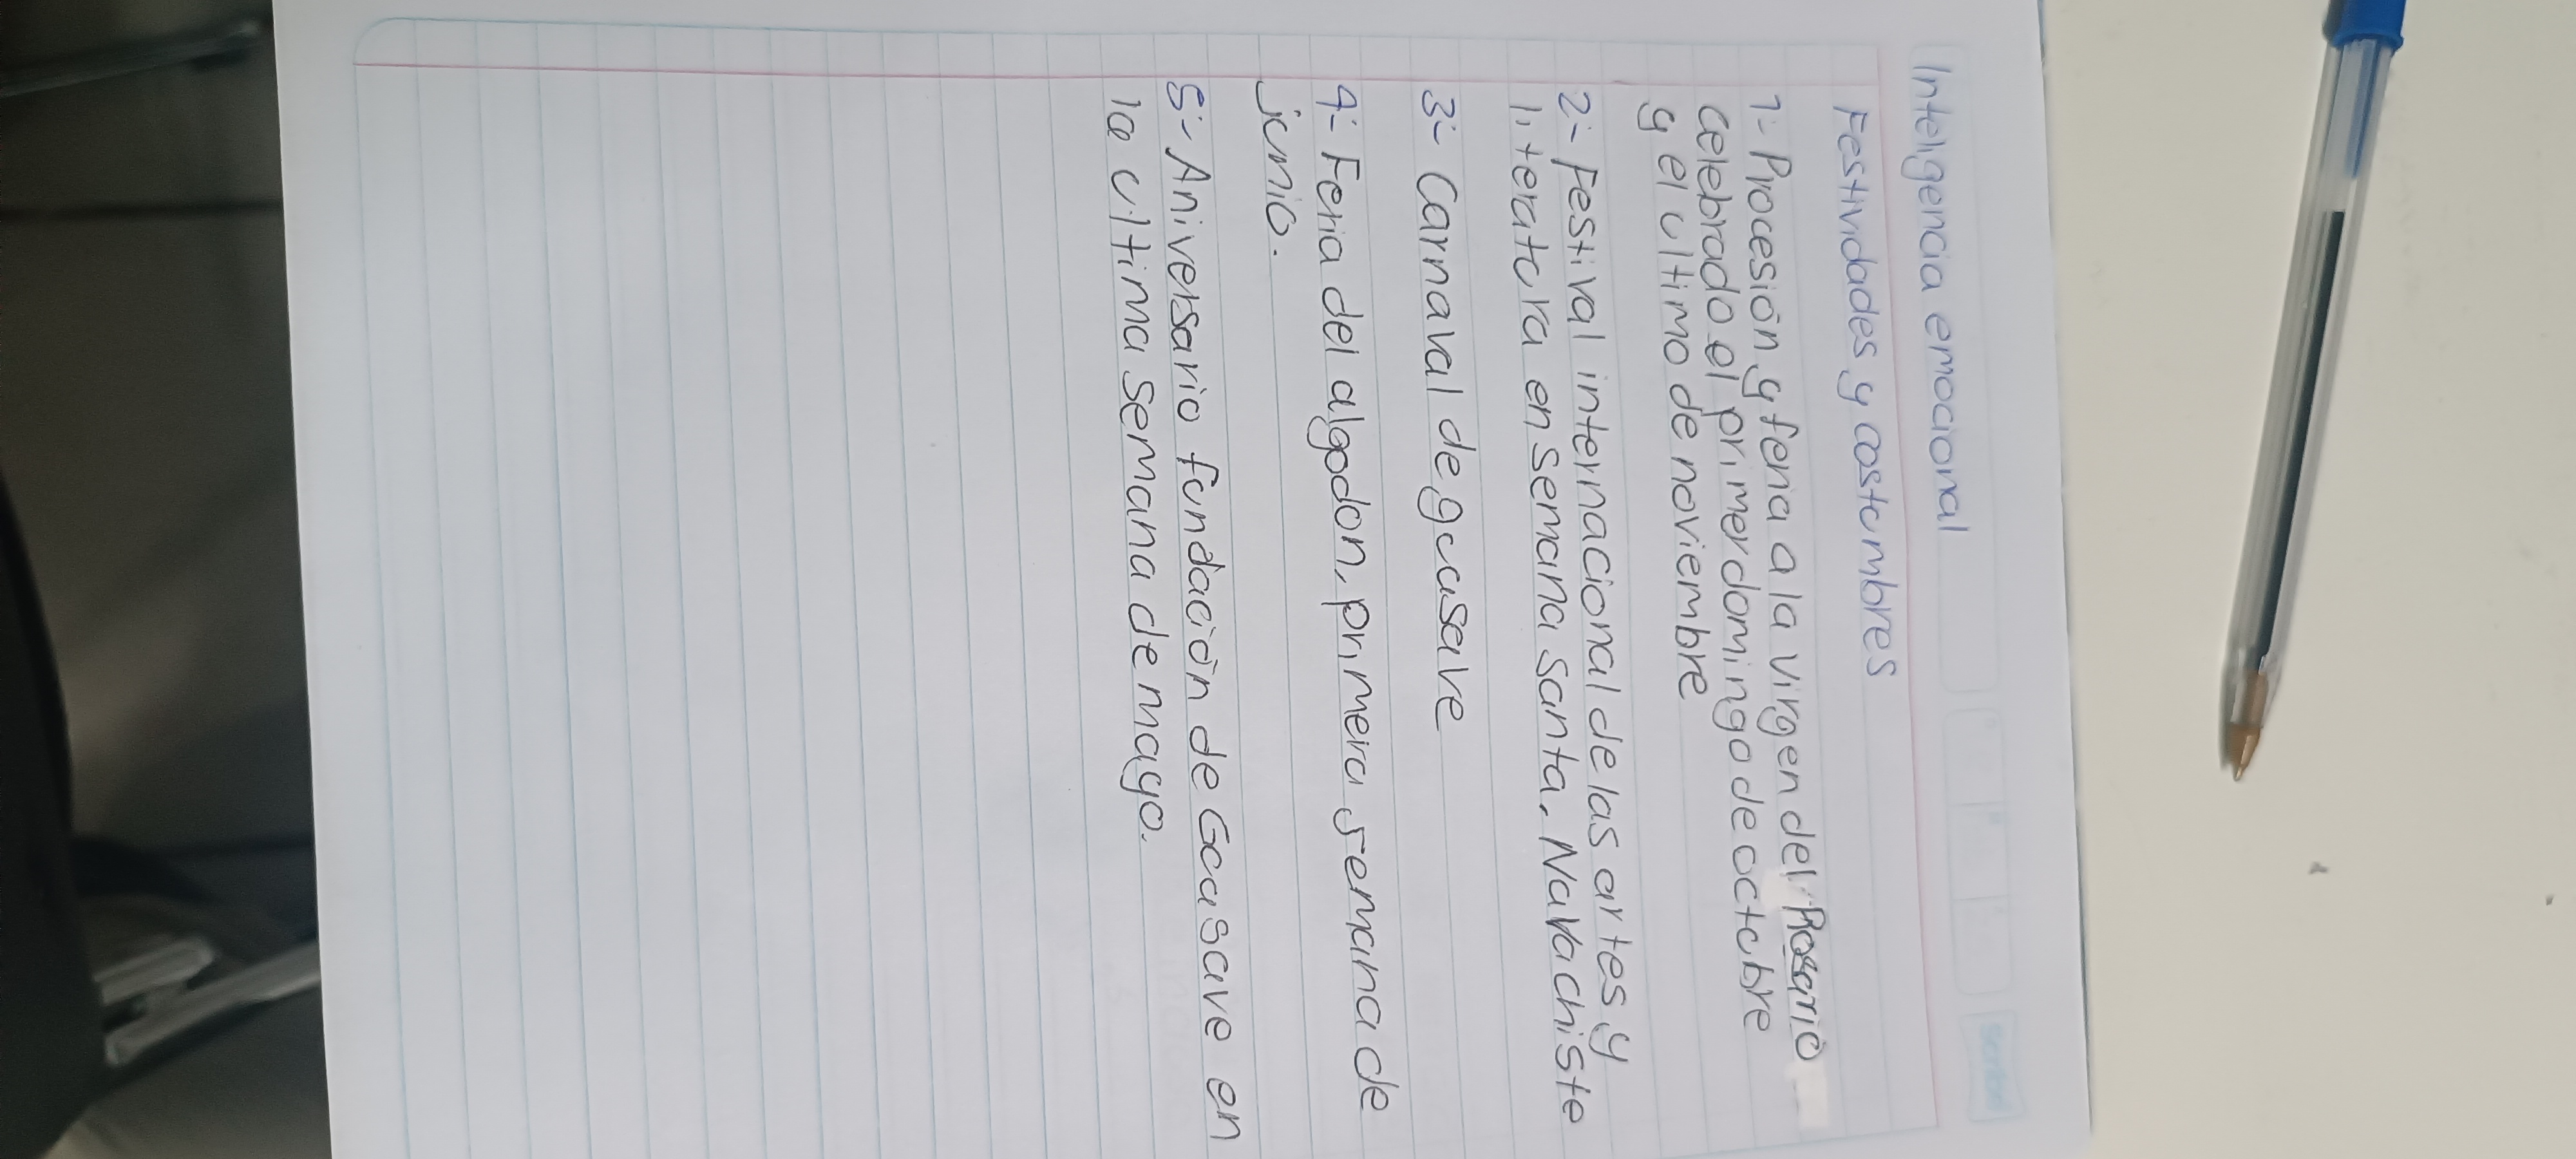 Inteligencia emocional
Festividades y costumbres
1:- Procesión y feria a la virgen del Rosario
celebrado el primer domingo de octubre
y el ultimo de noviembre
2:- Festival internacional de las artes y
literatura en semana santa. Navachiste
3:- Carnaval de guasave
4:- Feria del algodon, primera semana de
junio.
5:- Aniversario fundación de Guasave en
la ultima semana de mayo.
Scribe